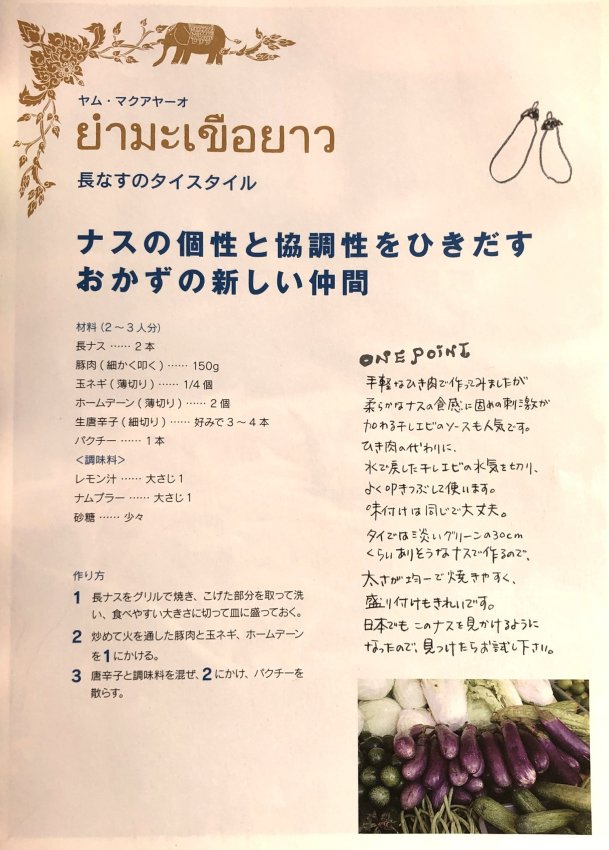 ヤム・マクアヤーオ
ยำมะเขือยาว
長なすのタイスタイル
ナスの個性と協調性をひきだす
おかずの新しい仲間
材料（2～3人分）
長ナス …… 2本
豚肉(細かく叩く) …… 150g
玉ネギ(薄切り) …… 1/4個
ホームデーン(薄切り) …… 2個
生唐辛子(細切り) …… 好みで3～4本
パクチー …… 1本
<調味料>
レモン汁 …… 大さじ1
ナムプラー …… 大さじ1
砂糖 …… 少々
作り方
1 長ナスをグリルで焼き、こげた部分を取って洗
い、食べやすい大きさに切って皿に盛っておく。
2 炒めて火を通した豚肉と玉ネギ、ホームデーン
を1にかける。
3 唐辛子と調味料を混ぜ、2にかけ、パクチーを
散らす。
ONE POINT
手軽なひき肉で作ってみましたが
柔らかなナスの食感に固めの刺激が
加わる干しエビのソースも人気です。
ひき肉の代わりに、
水で戻した干しエビの水気を切り、
よく叩きつぶして使います。
味付けは同じで大丈夫。
タイでは淡いグリーンの30cm
くらいありそうなナスで作るので、
太さが均一で焼きやすく、
盛り付けもきれいです。
日本でもこのナスを見かけるように
なったので、見つけたらお試し下さい。